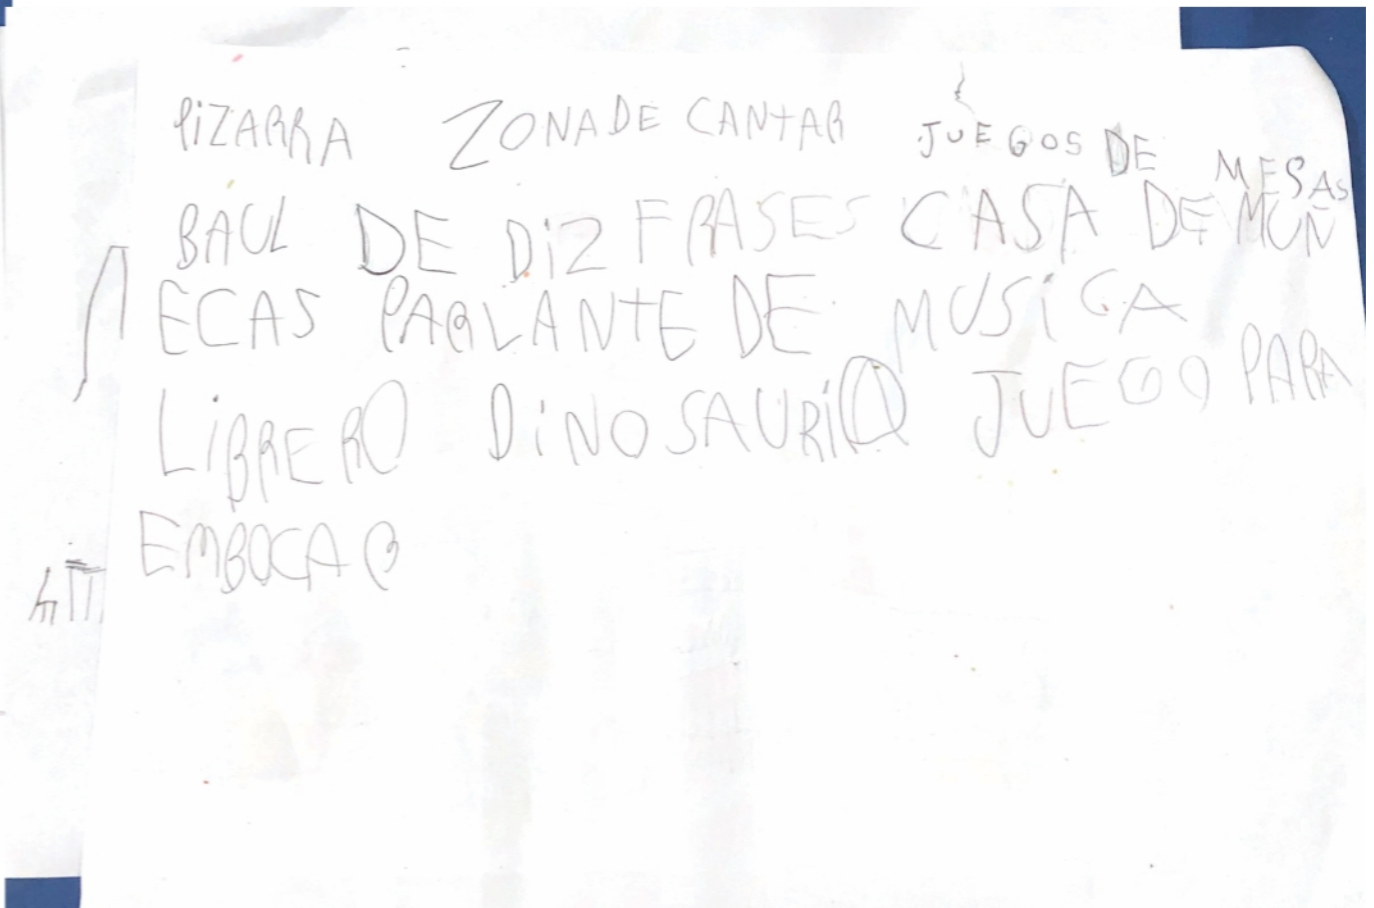 PIZARRA ZONA DE CANTAR JUEGOS DE MESAS
BAUL DE DIZFRASES CASA DE MUÑ
ECAS PARLANTE DE MUSICA
LIBRERO DINOSAURIO JUEGO PARA
EMBOCAR